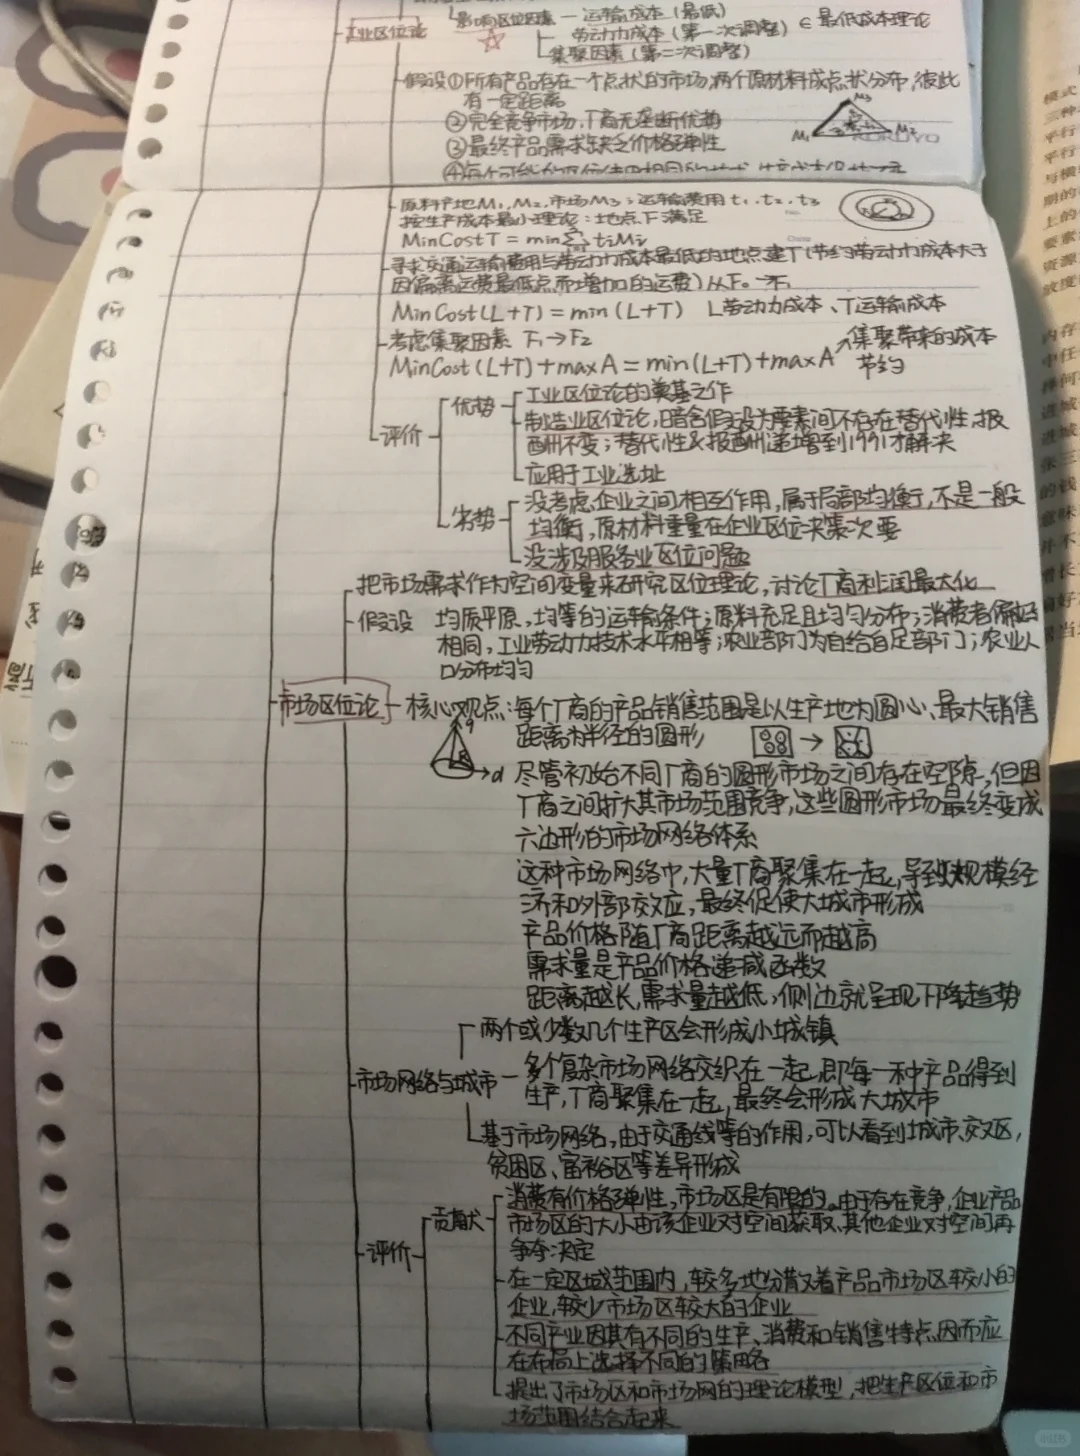 影响区位因素 — 运输成本（最低）
工业区位论
劳动力成本（第一次调整） ∈ 最低成本理论
集聚因素（第二次调整）
假设①所有产品存在一个点状的市场,两个原材料成点状分布,彼此
有一定距离
②完全竞争市场,厂商无垄断优势
③最终产品需求缺乏价格弹性
M₃
M₁
M₂
原料产地M₁,M₂,市场M₃;运输费用t₁.t₂.t₃
按生产成本最小理论:地点F满足
MinCostT = min∑tᵢMᵢ
寻求交通运输费用与劳动力成本最低的地点建厂(节约劳动力成本大于
因偏离运费最低点而增加的运费)从F₀→F₁
MinCost(L+T) = min(L+T) L劳动力成本、T运输成本
考虑集聚因素 F₁→F₂
集聚带来的成本
MinCost(L+T)+maxA = min(L+T)+maxA
节约
评价
优势
工业区位论的奠基之作
制造业区位论,暗含假设为要素间不存在替代性,报
酬不变;替代性&报酬递增到1991才解决
应用于工业选址
劣势
没考虑企业之间相互作用,属于局部均衡,不是一般
均衡,原材料重量在企业区位决策次要
没涉及服务业区位问题
把市场需求作为空间变量来研究区位理论,讨论厂商利润最大化
假设 均质平原,均等的运输条件;原料充足且均匀分布;消费者偏好
相同,工业劳动力技术水平相等;农业部门为自给自足部门;农业人
口分布均匀
市场区位论
核心观点:每个厂商的产品销售范围是以生产地为圆心、最大销售
距离为半径的圆形
q
d
尽管初始不同厂商的圆形市场之间存在空隙,但因
厂商之间扩大其市场范围竞争,这些圆形市场最终变成
六边形的市场网络体系
这种市场网络中,大量厂商聚集在一起,导致规模经
济和外部效应,最终促使大城市形成
产品价格随厂商距离越远而越高
需求量是产品价格递减函数
距离越长,需求量越低,侧边就呈现下降趋势
两个或少数几个生产区会形成小城镇
市场网络与城市
多个复杂市场网络交织在一起,即每一种产品得到
生产,厂商聚集在一起,最终会形成大城市
基于市场网络,由于交通线等的作用,可以看到城市、郊区,
贫困区、富裕区等差异形成
评价
贡献
消费有价格弹性,市场区是有限的。由于存在竞争,企业产品
市场区的大小由该企业对空间获取、其他企业对空间再
争夺决定
在一定区域范围内,较多地分散着产品市场区较小的
企业,较少市场区较大的企业
不同产业因其有不同的生产、消费和销售特点,因而应
在布局上选择不同的策略
提出了市场区和市场网的理论模型,把生产区位和市
场范围结合起来